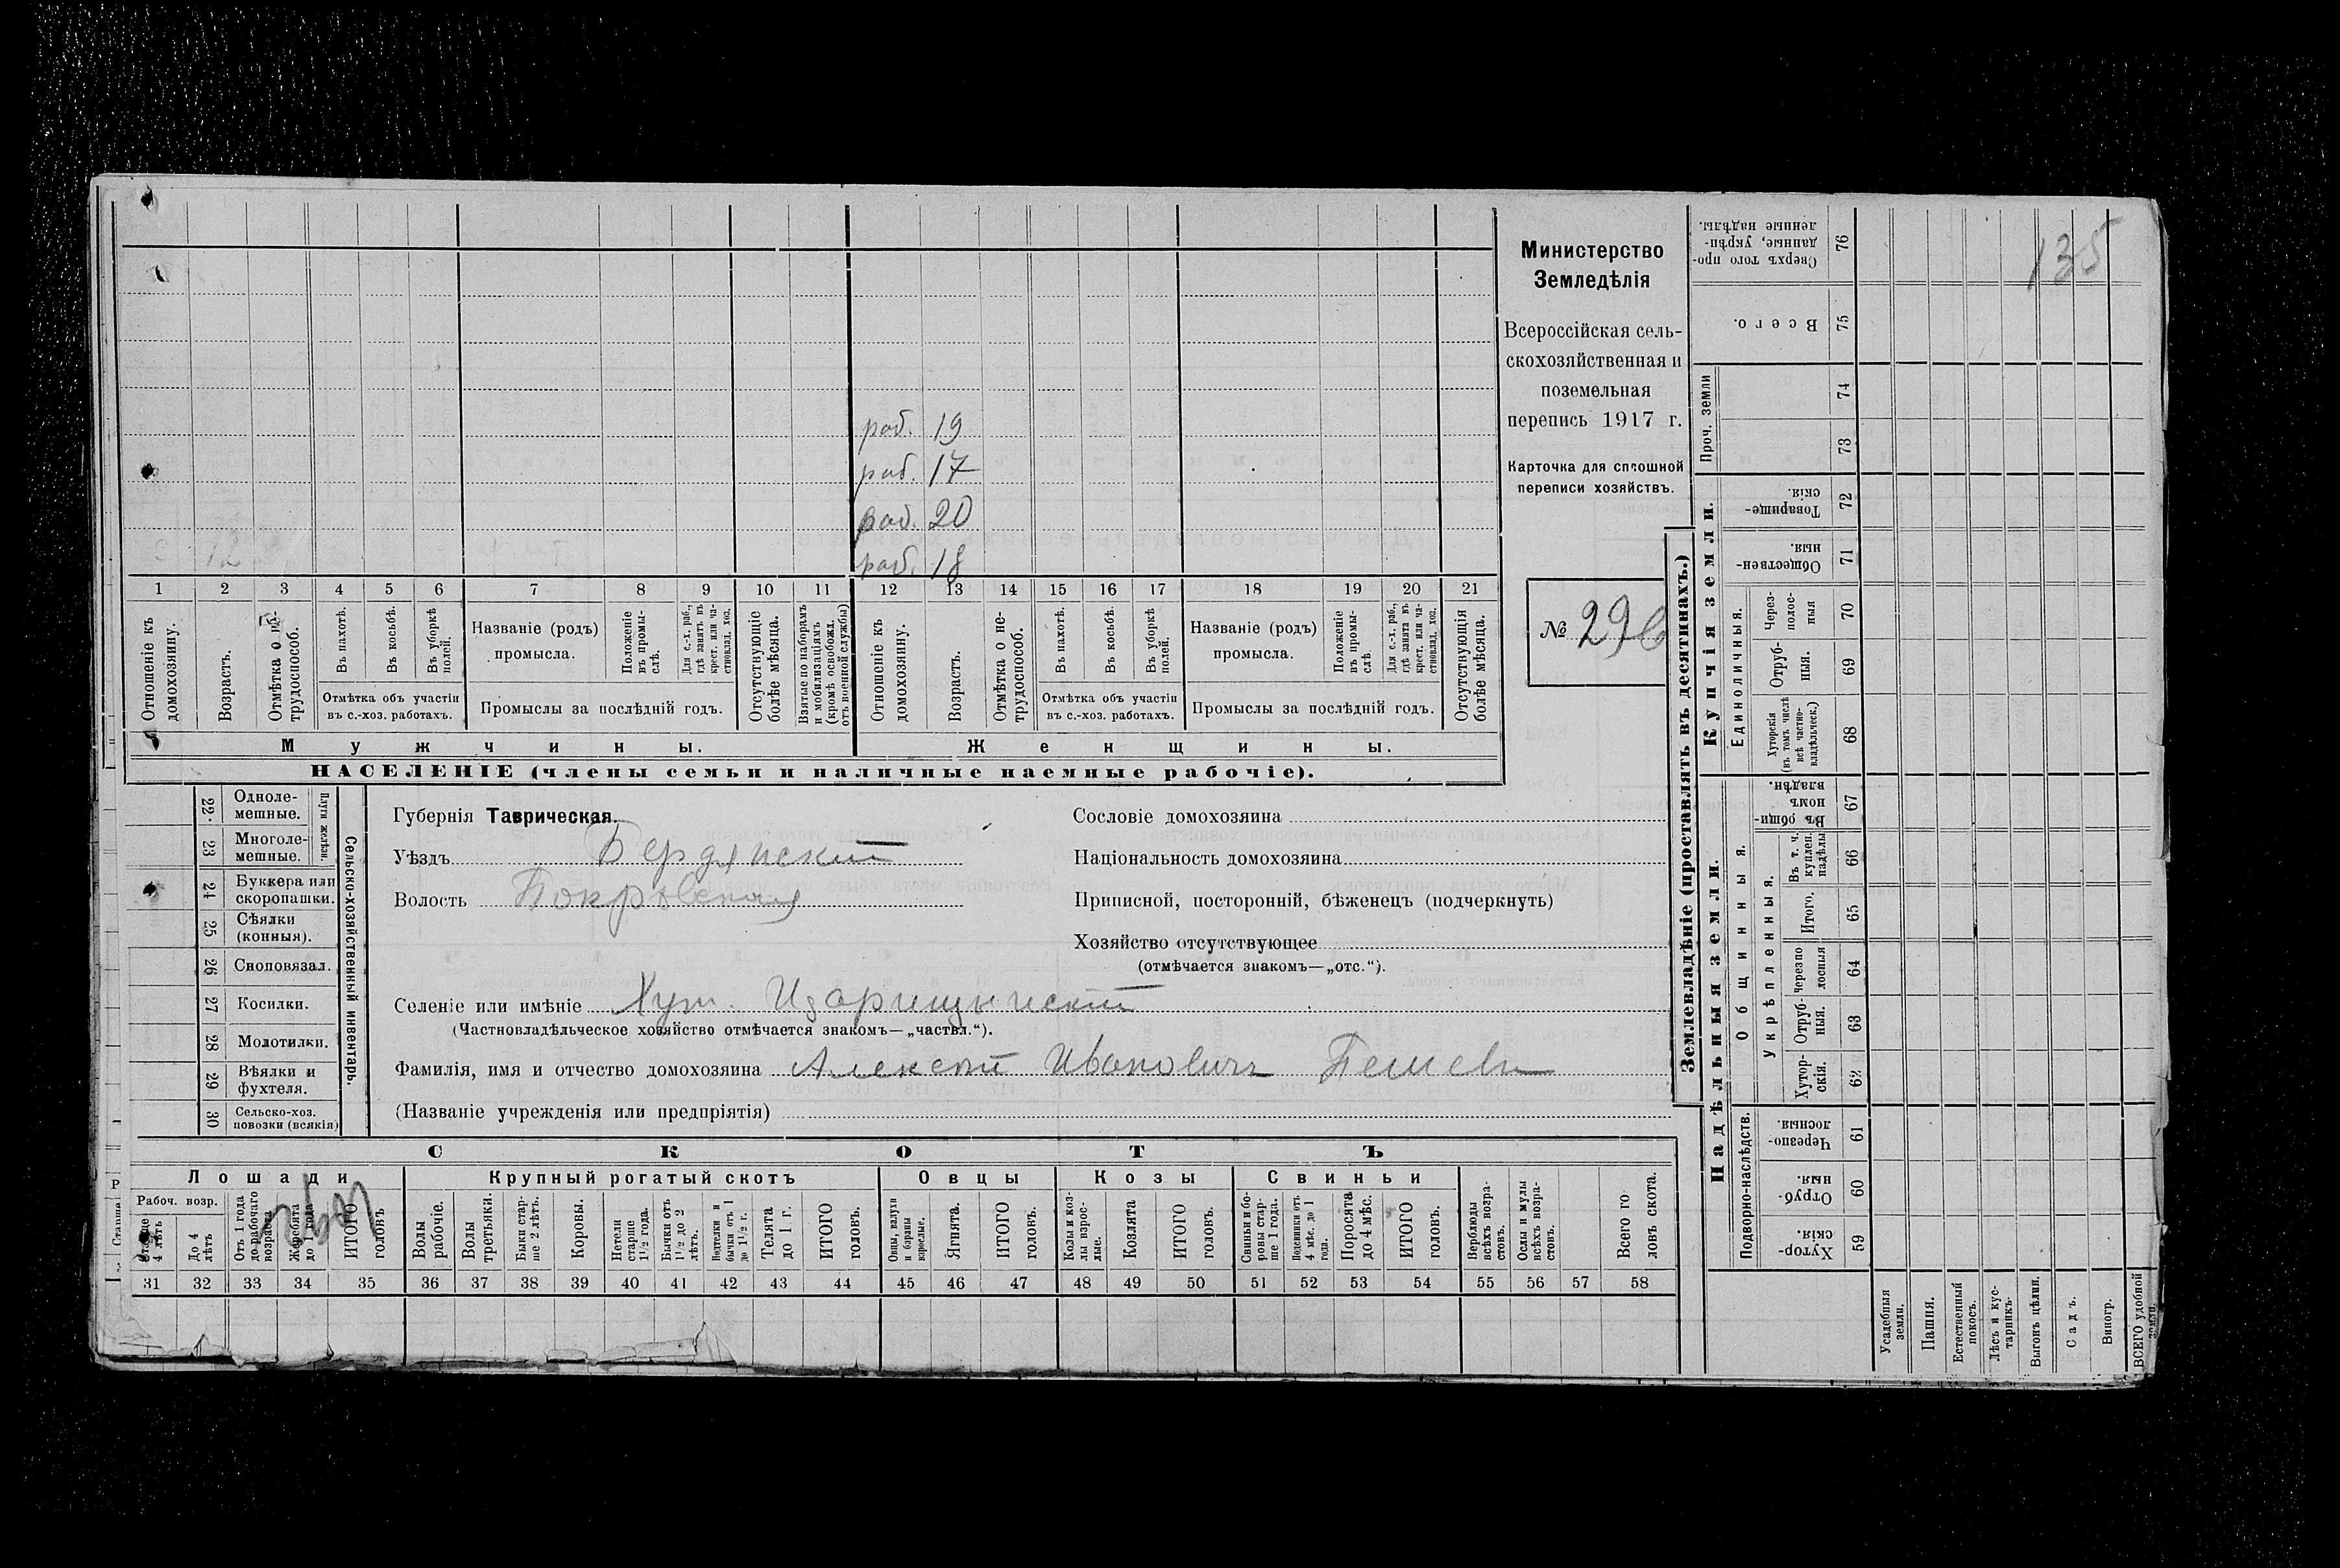 135
раб. 19
раб. 17
раб. 20
раб. 18
1 2 3 4 5 6 7 8 9 10 11 12 13 14 15 16 17 18 19 20 21
Отношеніе къ домохозяину.
Возрастъ.
Отмѣтка о не-трудоспособ.
Въ пахотѣ.
Въ косьбѣ.
Въ уборкѣ полей.
Отмѣтка объ участіи въ с.-хоз. работахъ.
Названіе (родъ) промысла.
Положеніе въ промы-слѣ.
Для с.-х. раб., гдѣ занятъ въ крест. или ча-стновлад. хоз.
Промыслы за послѣдній годъ.
Отсутствующіе болѣе мѣсяца.
Взятые по наборамъ и мобилизаціямъ (кромѣ освобожд. отъ военной службы)
Отношеніе къ домохозяину.
Возрастъ.
Отмѣтка о не-трудоспособ.
Въ пахотѣ.
Въ косьбѣ.
Въ уборкѣ полей.
Отмѣтка объ участіи въ с.-хоз. работахъ.
Названіе (родъ) промысла.
Положеніе въ промы-слѣ.
Для с.-х. раб., гдѣ занята въ крест. или ча-стновлад. хоз.
Промыслы за послѣдній годъ.
Отсутствующія болѣе мѣсяца.
Мужчины.
Женщины.
НАСЕЛЕНІЕ (члены семьи и наличные наемные рабочіе).
Министерство
Земледѣлія
Всероссійская сель-
скохозяйственная и
поземельная
перепись 1917 г.
Карточка для сплошной
переписи хозяйствъ.
№ 296
22. Одноле-мешные.
23 Многоле-мешные.
Плуги желѣзн.
24 Буккера или скоропашки.
25 Сѣялки (конныя).
26 Сноповязал.
27 Косилки.
28 Молотилки.
29 Вѣялки и фухтеля.
30 Сельско-хоз. повозки (всякія)
Сельско-хозяйственный инвентарь.
Губернія Таврическая.
Уѣздъ Бердянскій
Волость Покровская
Сословіе домохозяина
Національность домохозяина
Приписной, посторонній, бѣженецъ (подчеркнуть)
Хозяйство отсутствующее
(отмѣчается знакомъ—„отс.“).
Селеніе или имѣніе Хут.
(Частновладѣльческое хозяйство отмѣчается знакомъ—„частвл.“).
Фамилія, имя и отчество домохозяина Алексѣй Ивановичъ
(Названіе учрежденія или предпріятія)
СКОТЪ
Лошади
Рабоч. возр.
Старше 4 лѣтъ
До 4 лѣтъ
Отъ 1 года до рабочаго возраста
Жеребята до 1 года
ИТОГО головъ
Крупный рогатый скотъ
Волы рабочіе.
Волы третьяки.
Быки стар-ше 2 лѣтъ.
Коровы.
Нетели старше 1 1/2 года.
Бычки отъ 1 1/2 до 2 лѣтъ.
Бычки отъ 1 до 1 1/2 г.
Телята до 1 г.
ИТОГО головъ.
Овцы
Овцы, валухи и бараны взрослые.
Ягнята.
ИТОГО головъ.
Козы
Козы и коз-лы взрос-лые.
Козлята
ИТОГО головъ.
Свиньи
Свиньи и бо-ровы стар-ше 1 года.
Подсвинки отъ 4 мѣс. до 1 года.
Поросята до 4 мѣс.
ИТОГО головъ.
Верблюды всѣхъ возра-стовъ.
Ослы и мулы всѣхъ возра-стовъ.
Всего го-ловъ скота.
31 32 33 34 35 36 37 38 39 40 41 42 43 44 45 46 47 48 49 50 51 52 53 54 55 56 57 58
Землевладѣніе (проставлять въ десятинахъ.)
Купчія земли.
Сверхъ того про-данные, укрѣп-ленные надѣлы. 76
Всего. 75
Проч. земли
74
73
Товарище-скія. 72
Обществен-ныя. 71
Единоличныя.
Через-полос-ныя 70
Отруб-ныя. 69
Хуторскія (въ томъ числѣ всѣ частно-владѣльческ.) 68
Надѣльныя земли.
Общинныя.
Въ общин-номъ владѣн. 67
Укрѣпленныя.
Въ т. ч. куплен. надѣлы 66
Итого. 65
Черезпо-лосныя 64
Отруб-ныя. 63
Хутор-скія. 62
Подворно-наслѣдств.
Черезпо-лосныя. 61
Отруб-ныя. 60
Хутор-скія. 59
Усадебныя земли.
Пашня.
Естественный покосъ.
Лѣсъ и кус-тарникъ.
Выгонъ цѣлин.
Садъ.
Виногр.
ВСЕГО удобной земли.